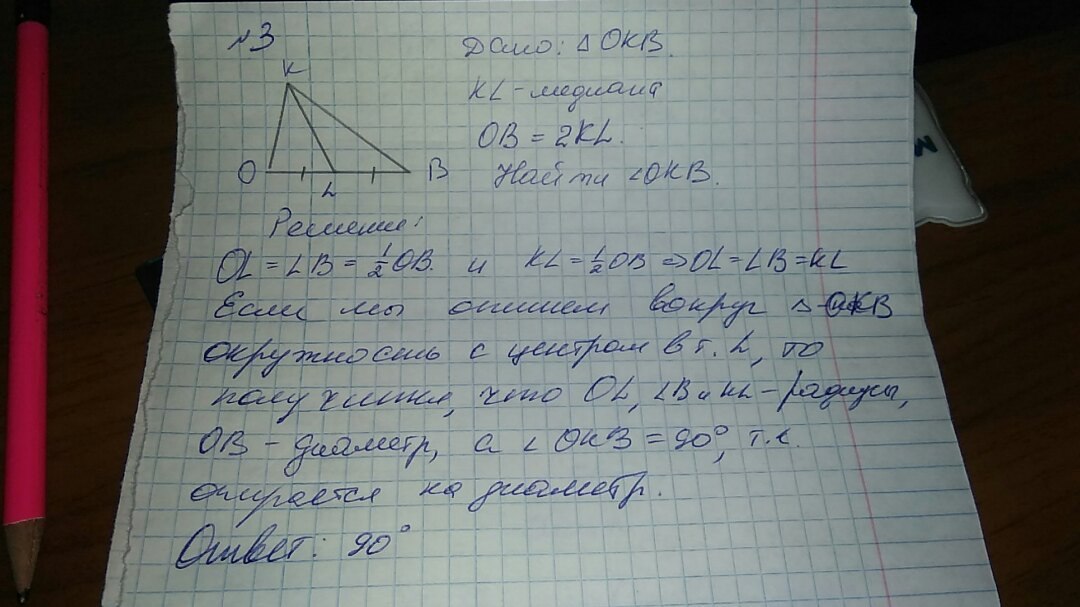 №3
Дано: △ OKB.
KL - медиана
OB = 2KL.
Найти ∠OKB.
K
O
L
B
Решение:
OL = LB = 1/2 OB. и KL = 1/2 OB ⇒ OL = LB = KL
Если мы опишем вокруг △ OKB
окружность с центром в т. L, то
получится, что OL, LB и KL - радиусы,
OB - диаметр, а ∠ OKB = 90°, т.к.
опирается на диаметр.
Ответ: 90°